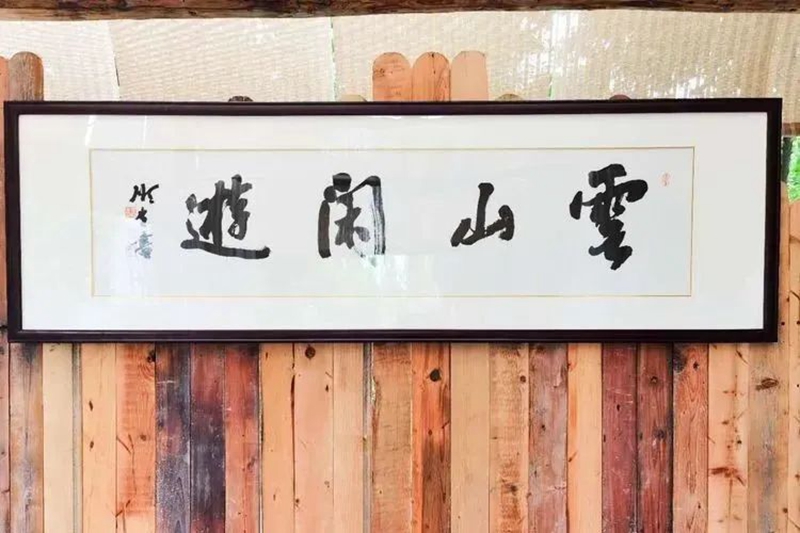 雲山閑遊